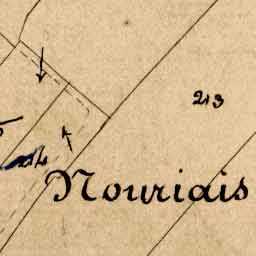 213
214
Nouriais